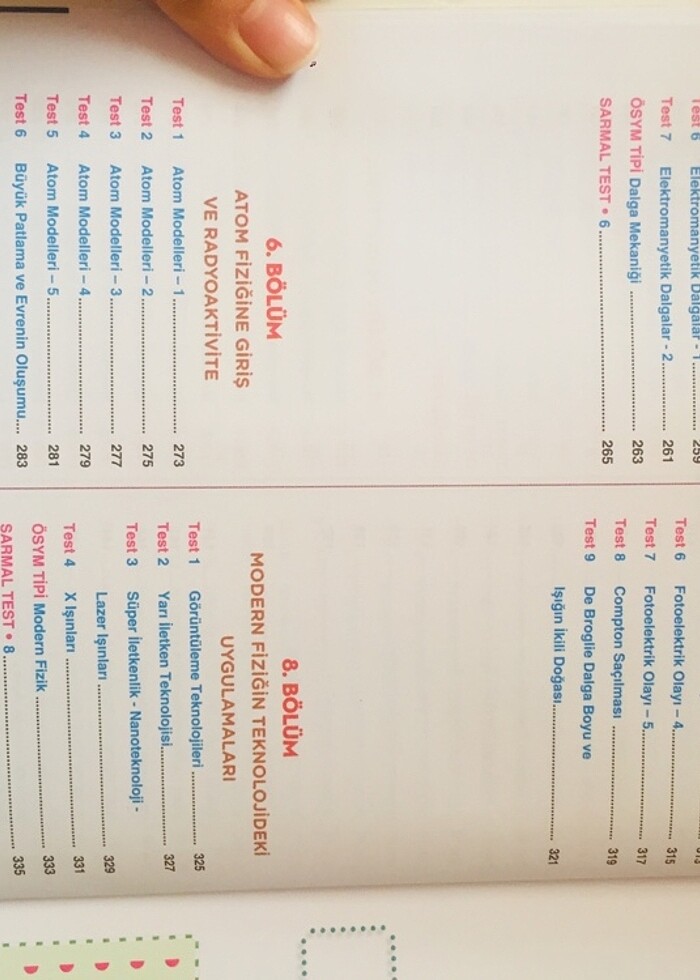 Test 6 Elektromanyetik Dalgalar - 1 259
Test 7 Elektromanyetik Dalgalar - 2 261
ÖSYM TİPİ Dalga Mekaniği 263
SARMAL TEST • 6 265
6. BÖLÜM
ATOM FİZİĞİNE GİRİŞ
VE RADYOAKTİVİTE
Test 1 Atom Modelleri – 1 273
Test 2 Atom Modelleri – 2 275
Test 3 Atom Modelleri – 3 277
Test 4 Atom Modelleri – 4 279
Test 5 Atom Modelleri – 5 281
Test 6 Büyük Patlama ve Evrenin Oluşumu 283
Test 6 Fotoelektrik Olayı – 4 315
Test 7 Fotoelektrik Olayı – 5 317
Test 8 Compton Saçılması 319
Test 9 De Broglie Dalga Boyu ve
Işığın İkili Doğası 321
8. BÖLÜM
MODERN FİZİĞİN TEKNOLOJİDEKİ
UYGULAMALARI
Test 1 Görüntüleme Teknolojileri 325
Test 2 Yarı İletken Teknolojisi 327
Test 3 Süper İletkenlik - Nanoteknoloji -
Lazer Işınları 329
Test 4 X Işınları 331
ÖSYM TİPİ Modern Fizik 333
SARMAL TEST • 8 335